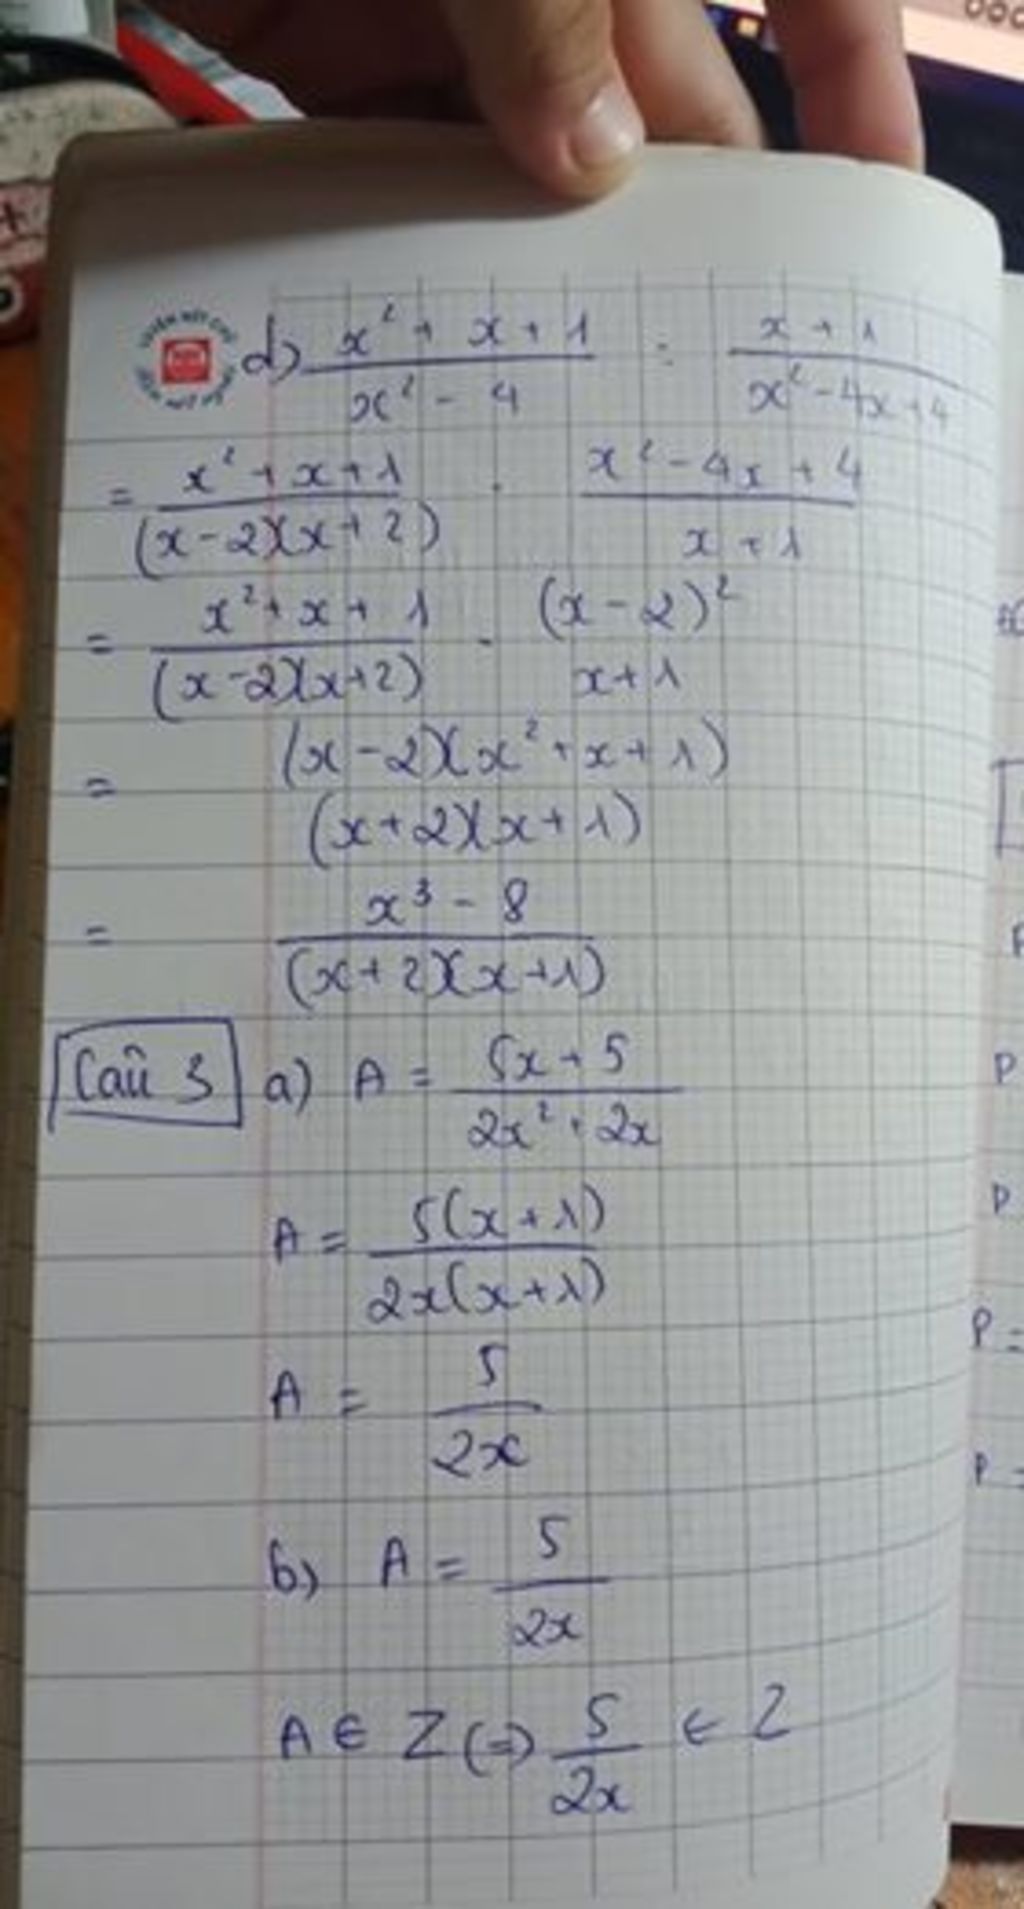 d) x² + x + 1 / x² - 4 : x + 1 / x² - 4x + 4
= x² + x + 1 / (x - 2)(x + 2) . x² - 4x + 4 / x + 1
= x² + x + 1 / (x - 2)(x + 2) . (x - 2)² / x + 1
= (x - 2)(x² + x + 1) / (x + 2)(x + 1)
= x³ - 8 / (x + 2)(x + 1)
Câu 3 a) A = 5x + 5 / 2x² + 2x
A = 5(x + 1) / 2x(x + 1)
A = 5 / 2x
b) A = 5 / 2x
A ∈ Z (=) 5 / 2x ∈ Z
P
P
P =
P =